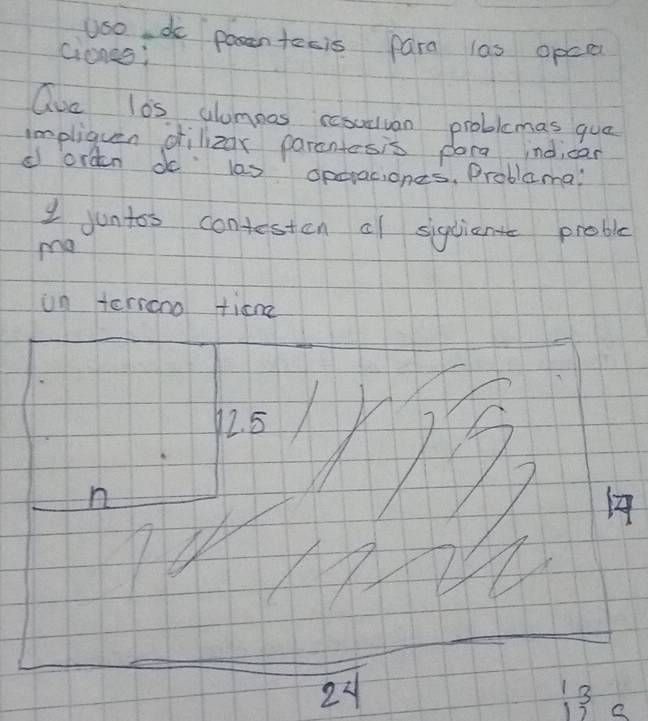 uso de parentesis para las opera
ciones:
Que los alumnos resuelvan problemas que
impliquen utilizar parentesis para indicar
el orden de las operaciones. Problema:
juntos contesten el siguiente proble
ma
un terreno tiene
12.5
n
17
24
13